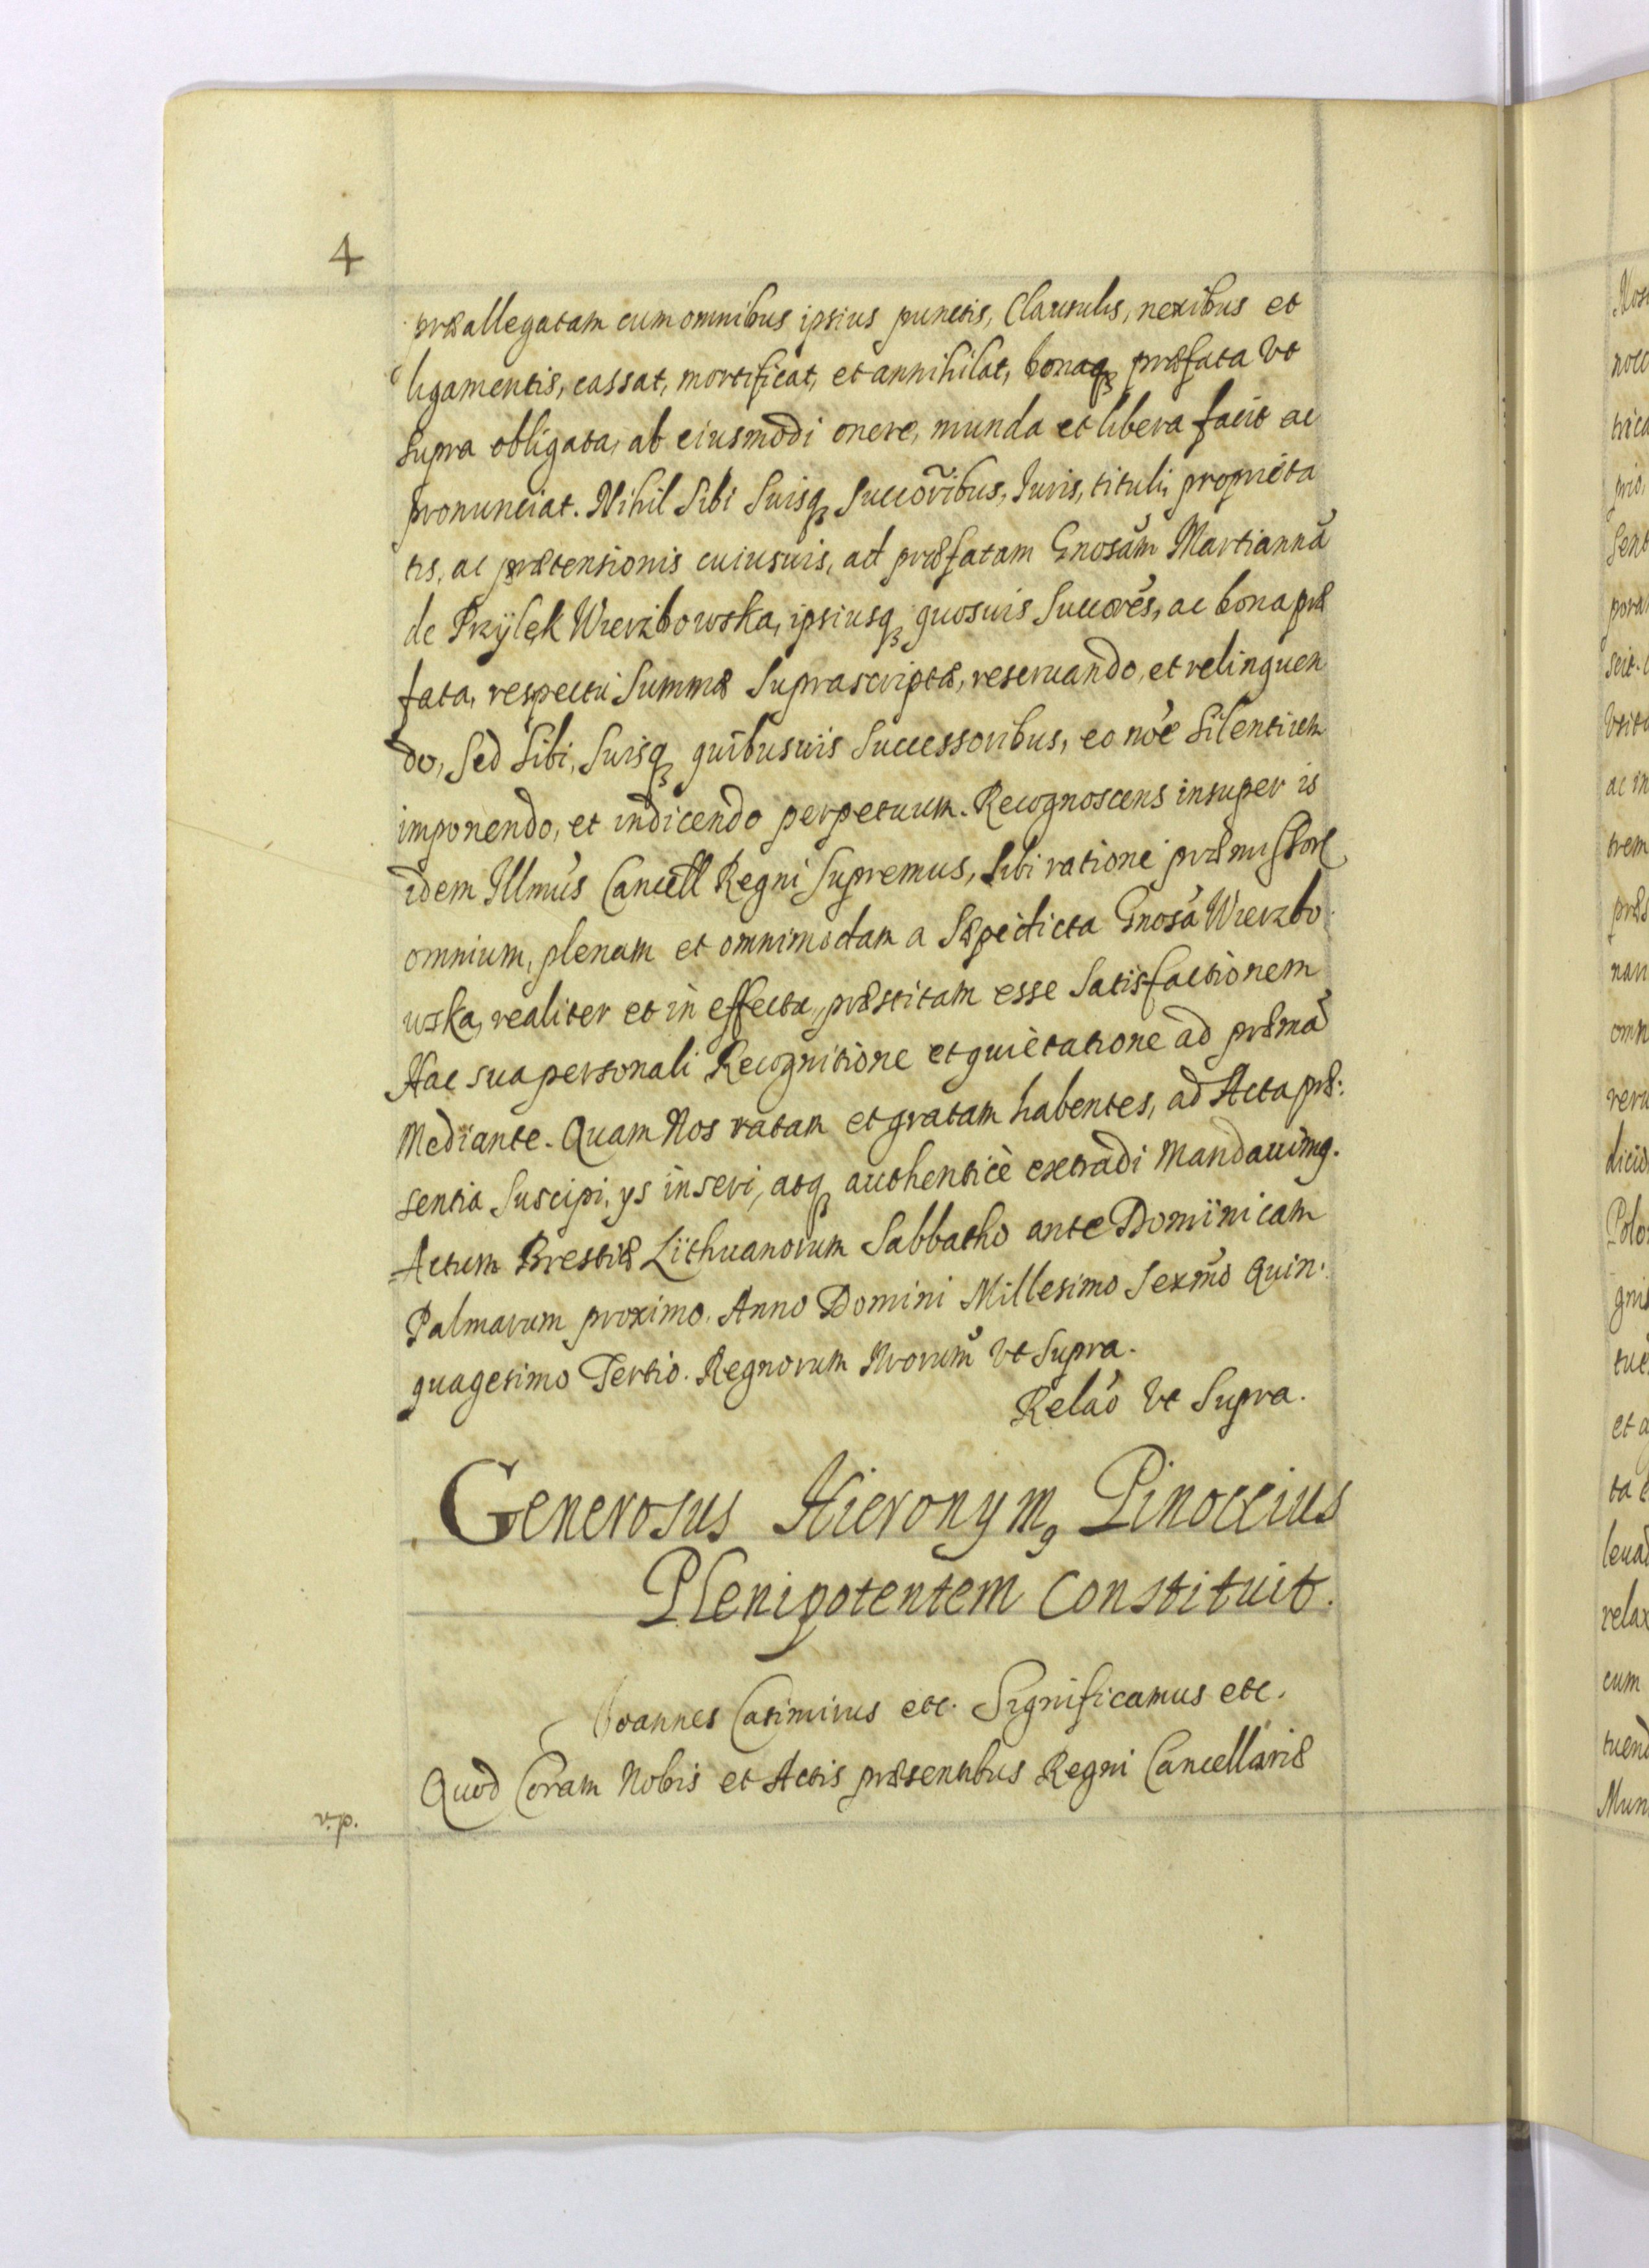 4
præallegatam cum omnibus ipsius punctis, Clausulis, nexibus et
ligamentis, cassat, mortificat, et annihilat, bonaq₃ præfata vt
supra obligata, ab eiusmodi onere, munda et libera facit ac
pronunciat. Nihil Sibi Suisq₃ Succor̃ibus, Juris, tituli, proprieta
tis, ac prætensionis cuiusuis, ad præfatam Gnosám Martianná
de Przÿlęk Wierzbowska, ipsiusq₃ quosuis Succorés, ac bona præ
fata, respectu Summæ Suprascriptæ, reseruando, et relinquen
do, Sed Sibi, Suisq₃ quibusuis Successoribus, eo noé Silentium
imponendo, et indicendo perpetuum. Recognoscens insuper is
idem Illmús Cancell Regni Supremus, Sibi ratione præmissor
omnium, plenam et omnimodam a Sæpedicta Gnosá Wierzbo
wska, realiter et in effectu, præstitam esse Satisfactionem
Hac sua personali Recognitione et quietatione ad præmá
Mediante. Quam Nos ratam et gratam habentes, ad Acta præ:
sentia Suscipi, ys inseri, atq₃ authenticè extradi Mandauimꝰ.
Actum Brestiæ Lithuanorum Sabbatho ante Dominicam
Palmarum proximo. Anno Domini Millesimo Sexmó Quin:
quagesimo Tertio. Regnorum Nrorum̃ vt Supra.
Reláo vt Supra.
Generosus Hieronymꝰ Pinoccius
Plenipotentem Constituit.
Joannes Casimirus etc. Significamus etc.
Quod Coram Nobis et Actis præsentibus Regni Cancellariæ
v.p.